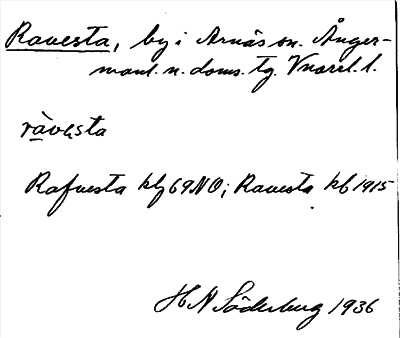 Ravesta, by i Arnäs sn. Ånger-
manl. n. doms. tg. Vnorrl. l.
ràvesta
Rafvesta klg 69 NO; Ravesta kb 1915
H N Söderberg 1936